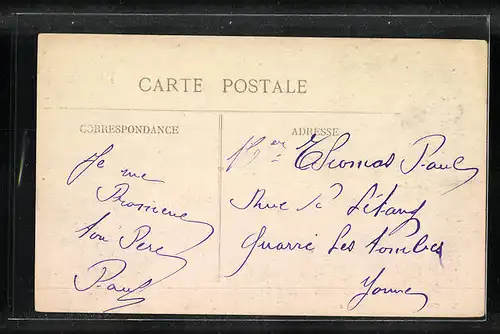 CARTE POSTALE
CORRESPONDANCE
ADRESSE
Je me
Promène
ton Père
Paul
Thomas Paul
Rue de l'étang
Quarré les tombes
Yonne